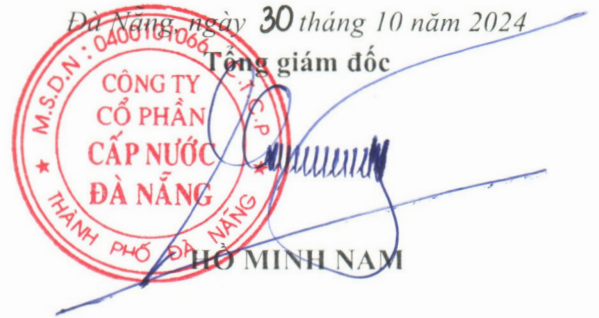 Đà Nẵng, ngày 30 tháng 10 năm 2024
Tổng giám đốc
M.S.D.N: 0400101066 C.T.C.P
CÔNG TY
CỔ PHẦN
CẤP NƯỚC
ĐÀ NẴNG
THÀNH PHỐ ĐÀ NẴNG
HỒ MINH NAM